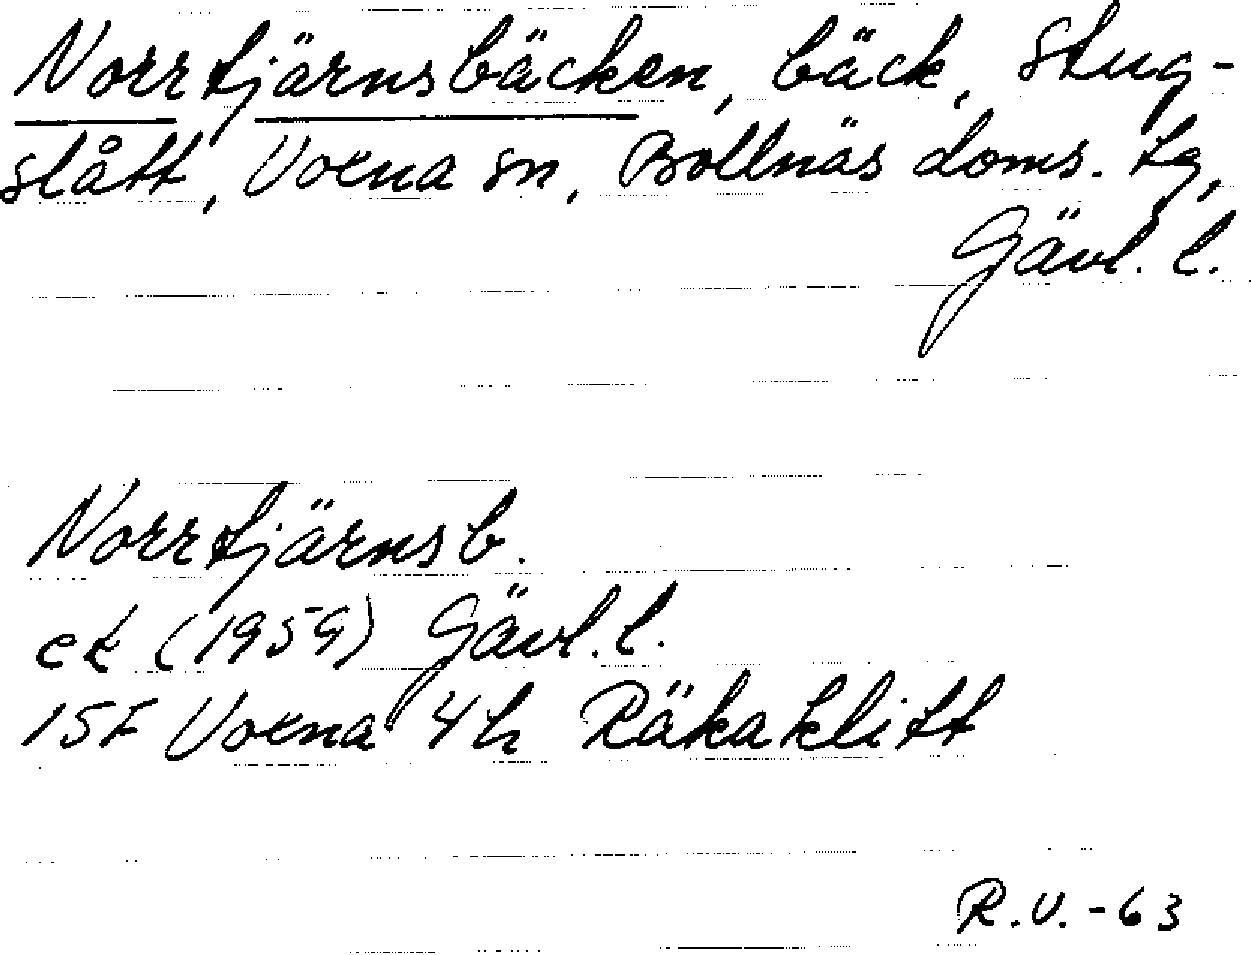 Norrtjärnsbäcken, bäck, Stug-
slått, Voxna sn, Bollnäs doms. tg,
Gävl. l.
Norrtjärnsb.
ek (1959) Gävl. l.
15F Voxna 4h Räkaklitt
R.V. -63